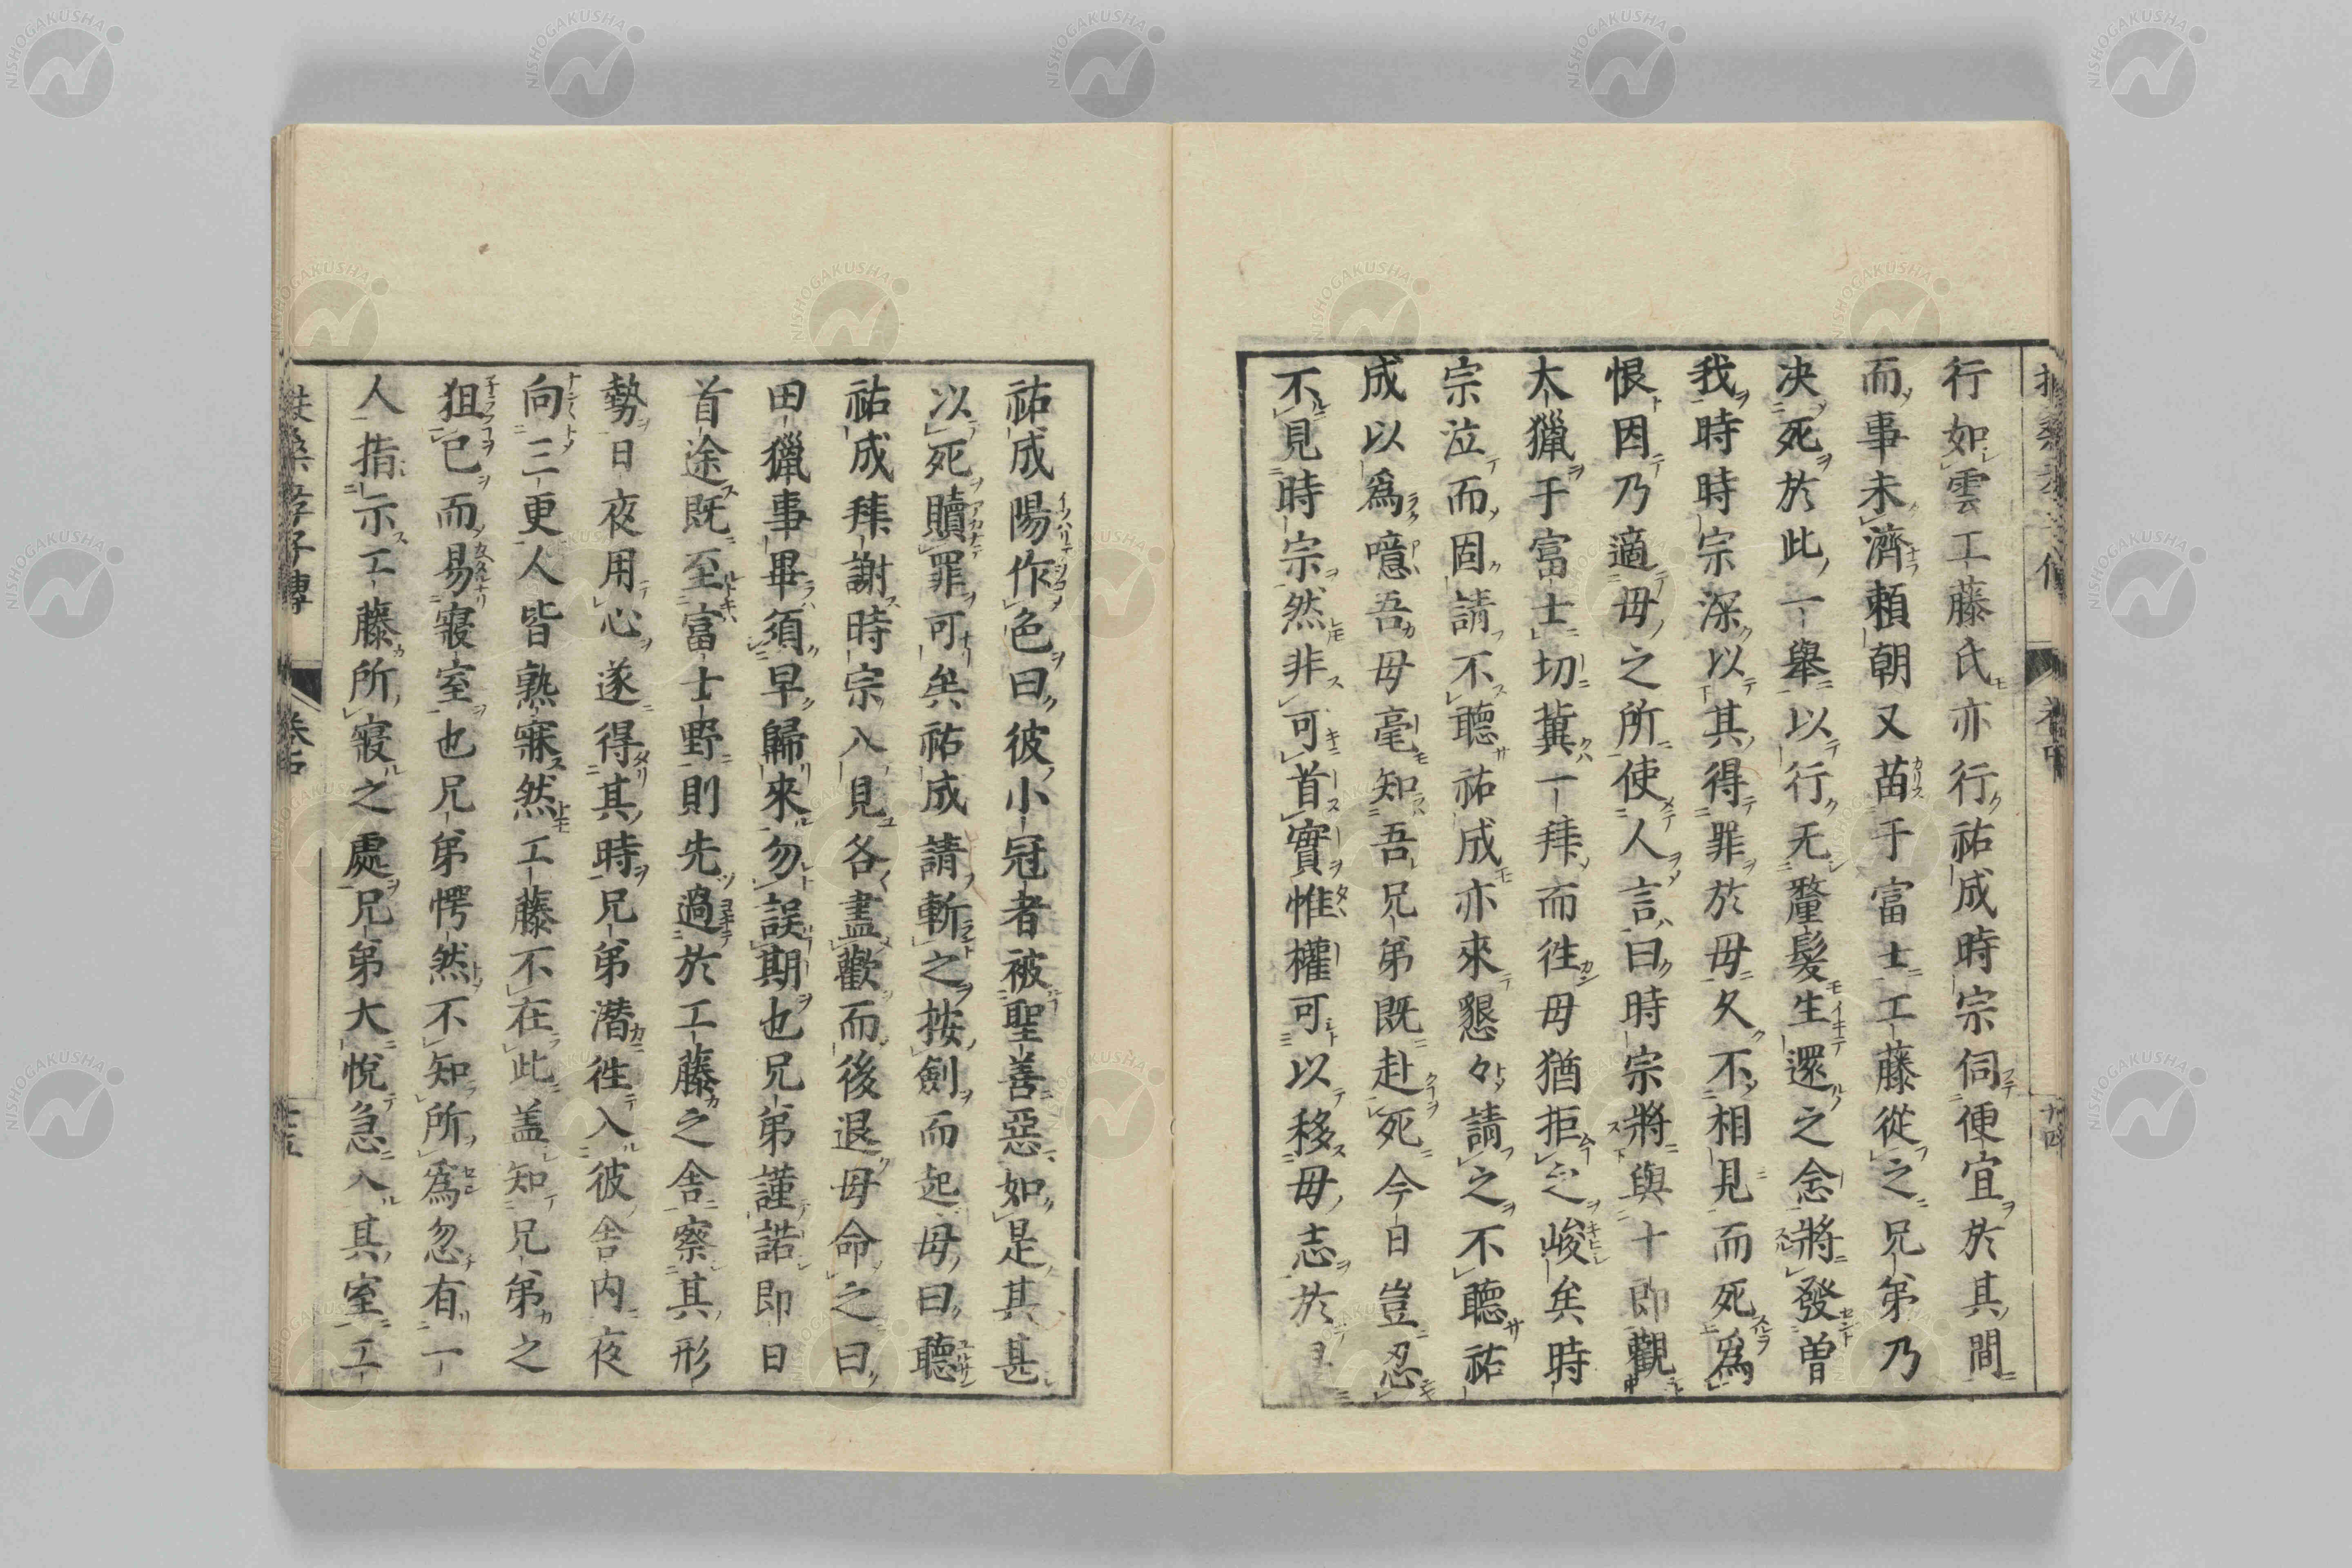 行如雲工藤氏亦行祐成時宗伺便宜於其間
而事未濟頼朝又苗于富士工藤從之兄弟乃
决死於此一舉以行无釐髮生還之念將發曽
我時時宗深以其得罪於毋久不相見而死爲
恨因乃適毋之所使人言曰時宗將與十郎觀
大獵于富士切冀一拜而徃毋猶拒之峻矣時
宗泣而固請不聽祐成亦來懇々請之不聽祐
成以爲噫吾毋毫知吾兄弟既赴死今日豈忍
不見時宗然非可首實惟權可以移毋志於
祐成陽作色曰彼小冠者被聖善惡如是其甚
以死贖罪可矣祐成請斬之按劍而起毋曰聽
祐成拜謝時宗入見各盡歡而後退毋命之曰
田獵事畢須早歸來勿誤期也兄弟謹諾即日
首途既至富士野則先過於工藤之舎察其形
勢日夜用心遂得其時兄弟潜徃入彼舎内夜
向三更人皆熟寐然工藤不在此盖知兄弟之
狙已而易寢室也兄弟愕然不知所爲忽有一
人指示工藤所寢之處兄弟大悅急入其室工
扶桑孝子傳
NISHOGAKUSHA